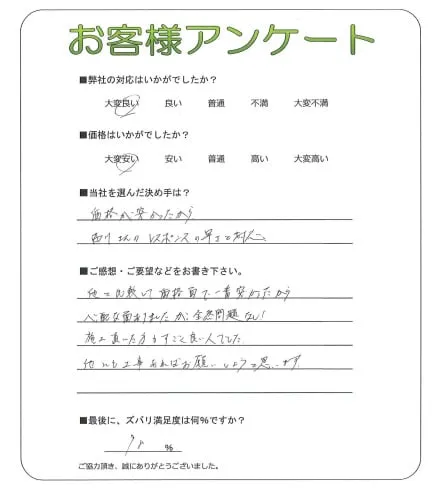 お客様アンケート
■弊社の対応はいかがでしたか？
大変良い 良い 普通 不満 大変不満
■価格はいかがでしたか？
大変安い 安い 普通 高い 大変高い
■当社を選んだ決め手は？
価格が安かったから
レスポンスの早さと対応
■ご感想・ご要望などをお書き下さい。
他と比較して価格面で一番安かったから
心配な面ありましたが、全然問題なし！
施工頂いた方もすごく良い人でした
他にも工事あればお願いしようと思います
■最後に、ズバリ満足度は何％ですか？
%
ご協力頂き、誠にありがとうございました。